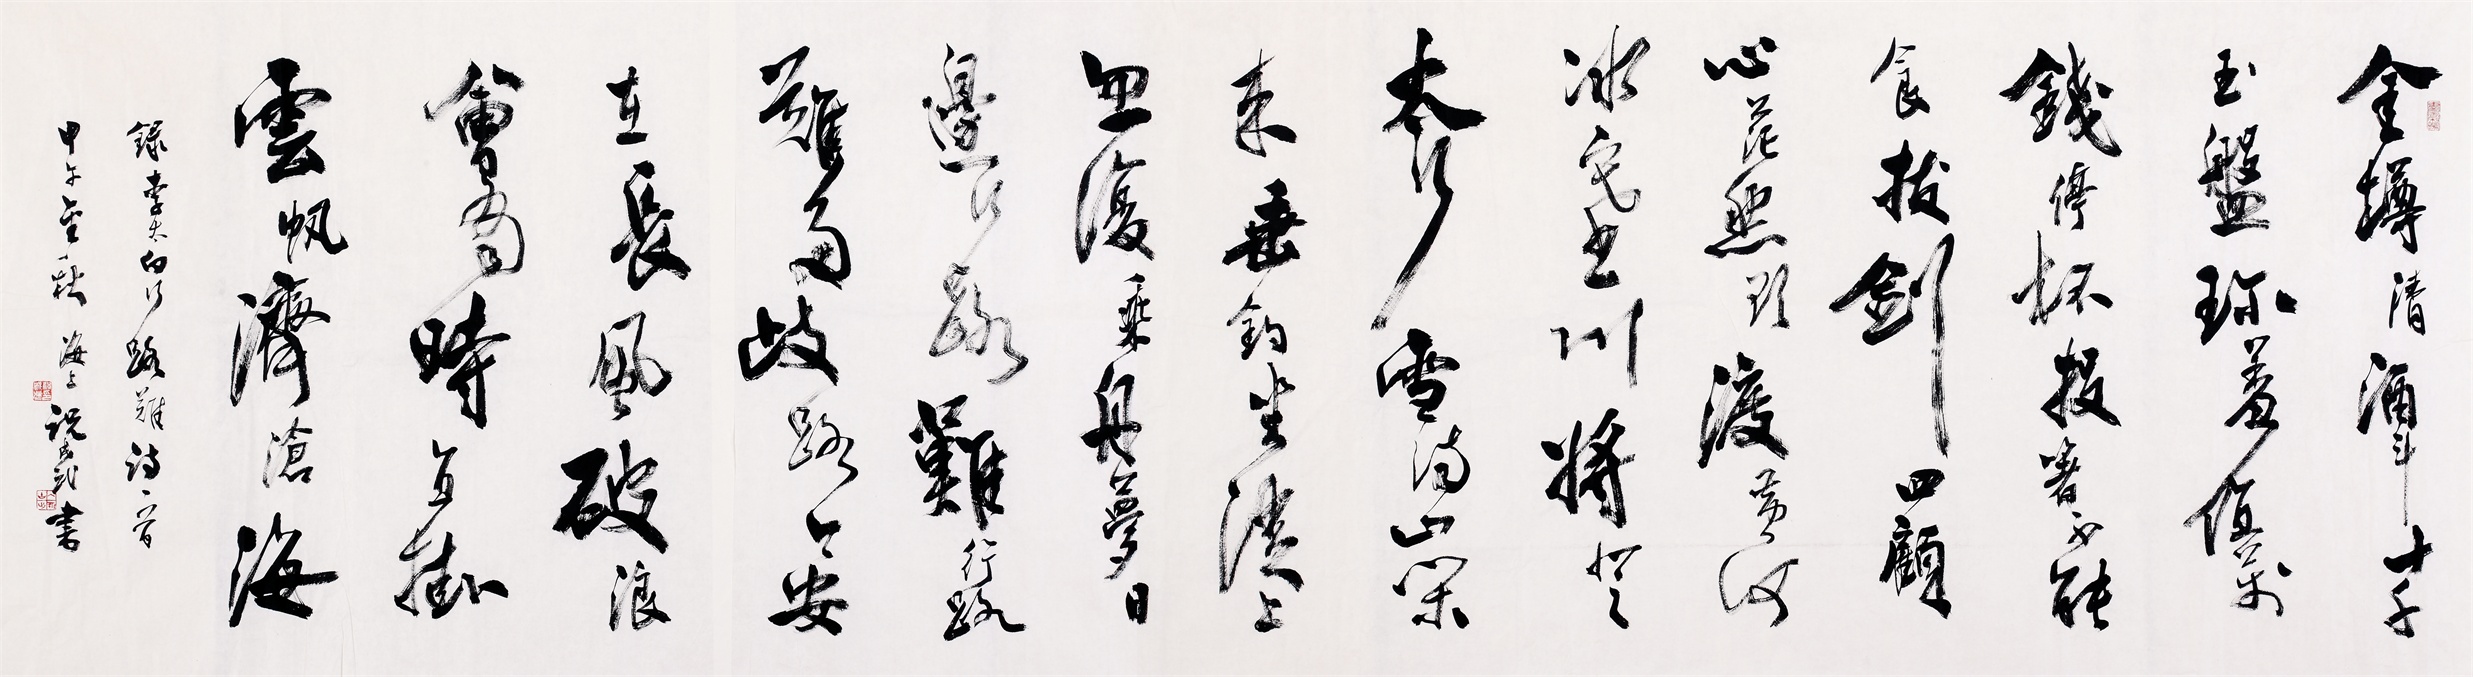 金樽清酒斗十千
玉盤珍羞值萬
錢停杯投箸不能
食拔劍四顧
心茫然欲渡黃河
冰塞川將登
太行雪滿山閑
來垂釣坐溪上
忽復乘舟夢日
邊行路難行路
難多歧路今安
在長風破浪
會有時直掛
雲帆濟滄海
錄李太白行路難詩一首
甲午金秋海上祝書